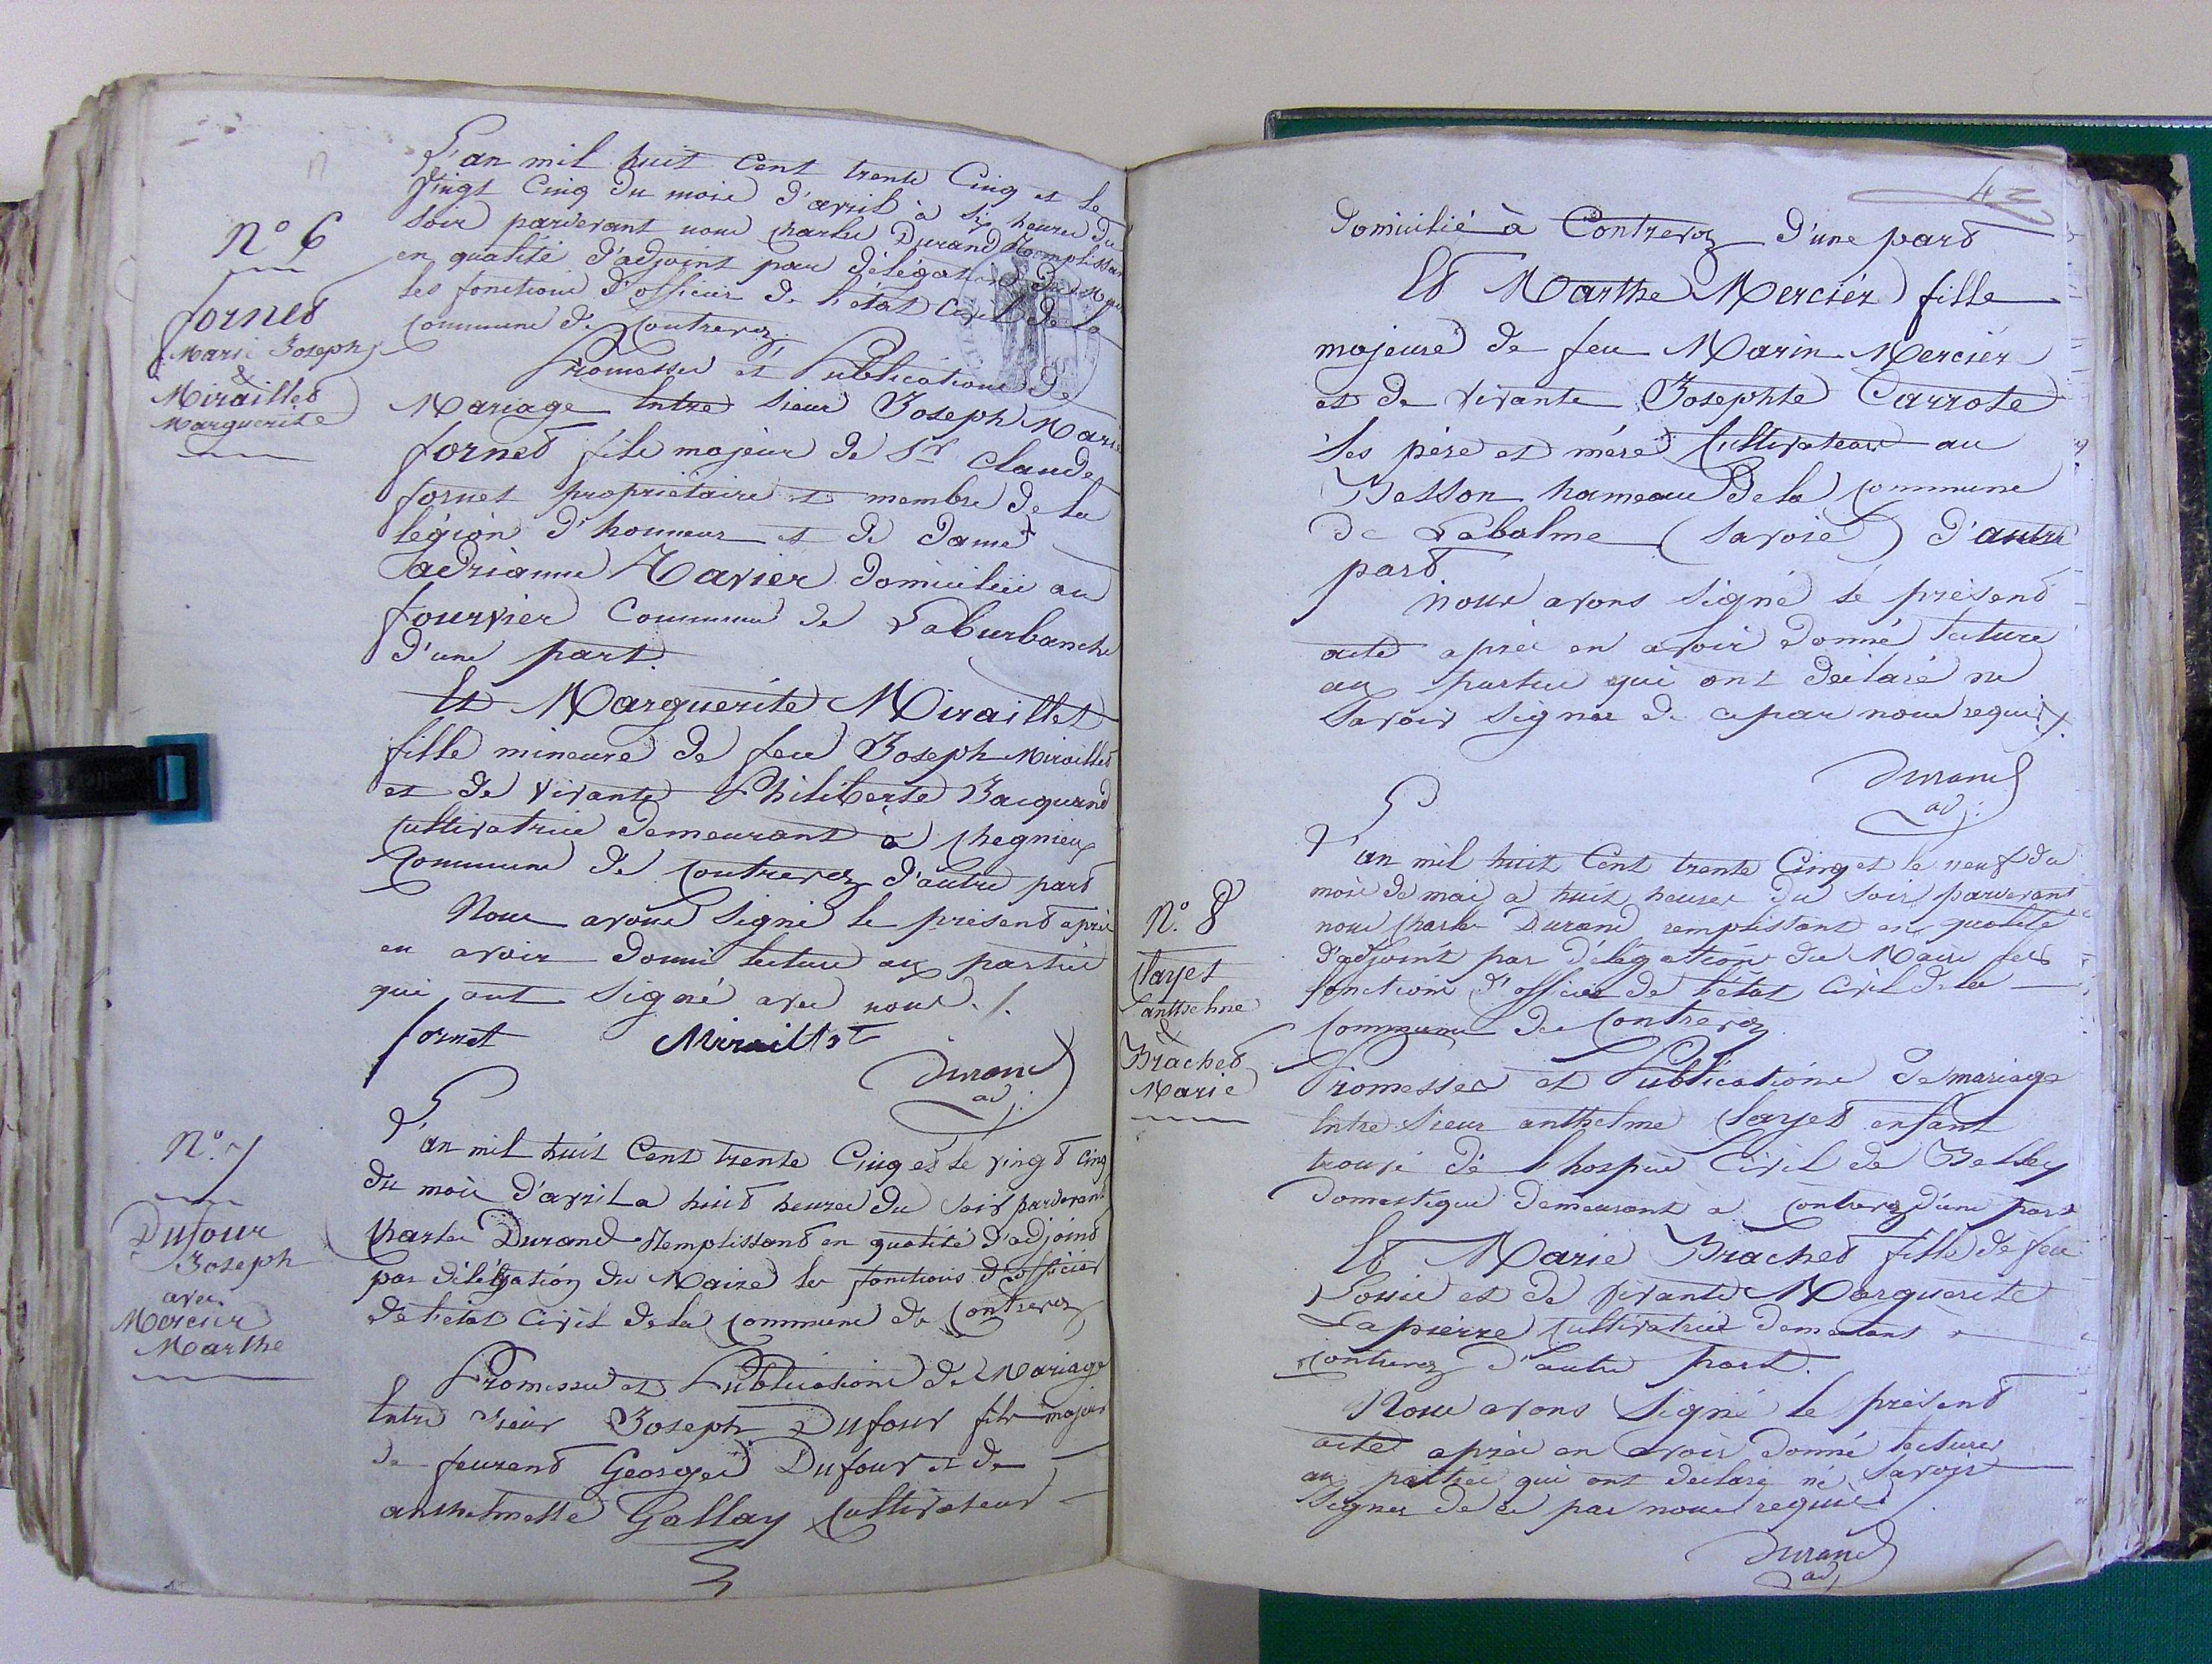 L'an mil huit Cent trente Cinq et le
vingt Cinq du mois d'avril à six heures du
soir pardevant nous Charles Durand Remplissant
en qualité d'adjoint par délégation du Maire
les fonctions d'officier de l'état Civil de la
Commune de Contrevoz
Promesses et Publications de
Mariage Entre Sieur Joseph Marie
fornet fils majeur de Sr Claude
fornet propriétaire et membre de la
légion d'honneur et de dame
adrianne Ravier domiciliés au
fourvier Commune de LaBurbanche
d'une part.
Et Marguerite Miraillet
fille mineure de feu Joseph Miraillet
et de vivante Philiberte Bacquand
Cultivatrice demeurant à Chegnieux
Commune de Contrevoz d'autre part
Nous avons Signé le présent après
en avoir donné lecture aux parties
qui ont Signé avec nous ./.
fornet Miraillet
Durand
adj.
N° 6
fornet
Marie Joseph
&
Miraillet
Marguerite
L'an mil huit Cent trente Cinq et le vingt cinq
du mois d'avril a huit heures du Soir pardevant
Charles Durand Remplissant en qualité d'adjoint
par délégation du Maire les fonctions d'officier
de l'état Civil de la Commune de Contrevoz
Promesses et Publications de Mariage
Entre Sieur Joseph Dufour fils majeur
de feurent George Dufour et de
anthelmette Gallay Cultivateur
N°. 7
Dufour
Joseph
avec
Mercier
Marthe
42
domicilié à Contrevoz d'une part
Et Marthe Mercier fille
majeure de feu Marin Mercier
et de vivante Josephte Carrote
Ses père et mère Cultivateurs au
Besson hameau De la Commune
de Labalme (Savoie) d'autre
part
Nous avons signé le présent
acte après en avoir donné lecture
aux parties qui ont déclaré ne
Savoir Signer de ce par nous requis ./.
Durand
adj.
L'an mil huit Cent trente Cinq et le neuf du
mois de mai a huit heures du Soir, pardevant
nous Charles Durand remplissant en qualité
d'adjoint par délégation du Maire les
fonctions d'officier de l'état Civil de la
Commune de Contrevoz.
Promesses et Publications de mariage
Entre Sieur anthelme Clayet enfant
trouvé de l'hospice Civil de Belley
Domestique demeurant à Contrevoz d'une part
Et Marie Brachet fille de feu
Louis et de vivante Marguerite
Lapierre Cultivatrice demeurant à
Contrevoz d'autre part.
Nous avons Signé le présent
acte après en avoir donné lecture
aux parties qui ont déclaré ne Savoir
Signer de ce par nous requis.
Durand
adj
N°. 8
Clayet
anthelme
&
Brachet
Marie